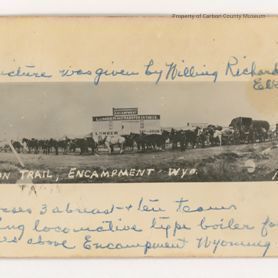 Property of Carbon County Museum
icture was given by Willing Richard
ENCAMPMENT
LUMBER
LUMBER
ON TRAIL, ENCAMPMENT - WYO.
rses 3 abreast - & ten teams
ng locomotive type boiler fo
es above Encampment Wyoming